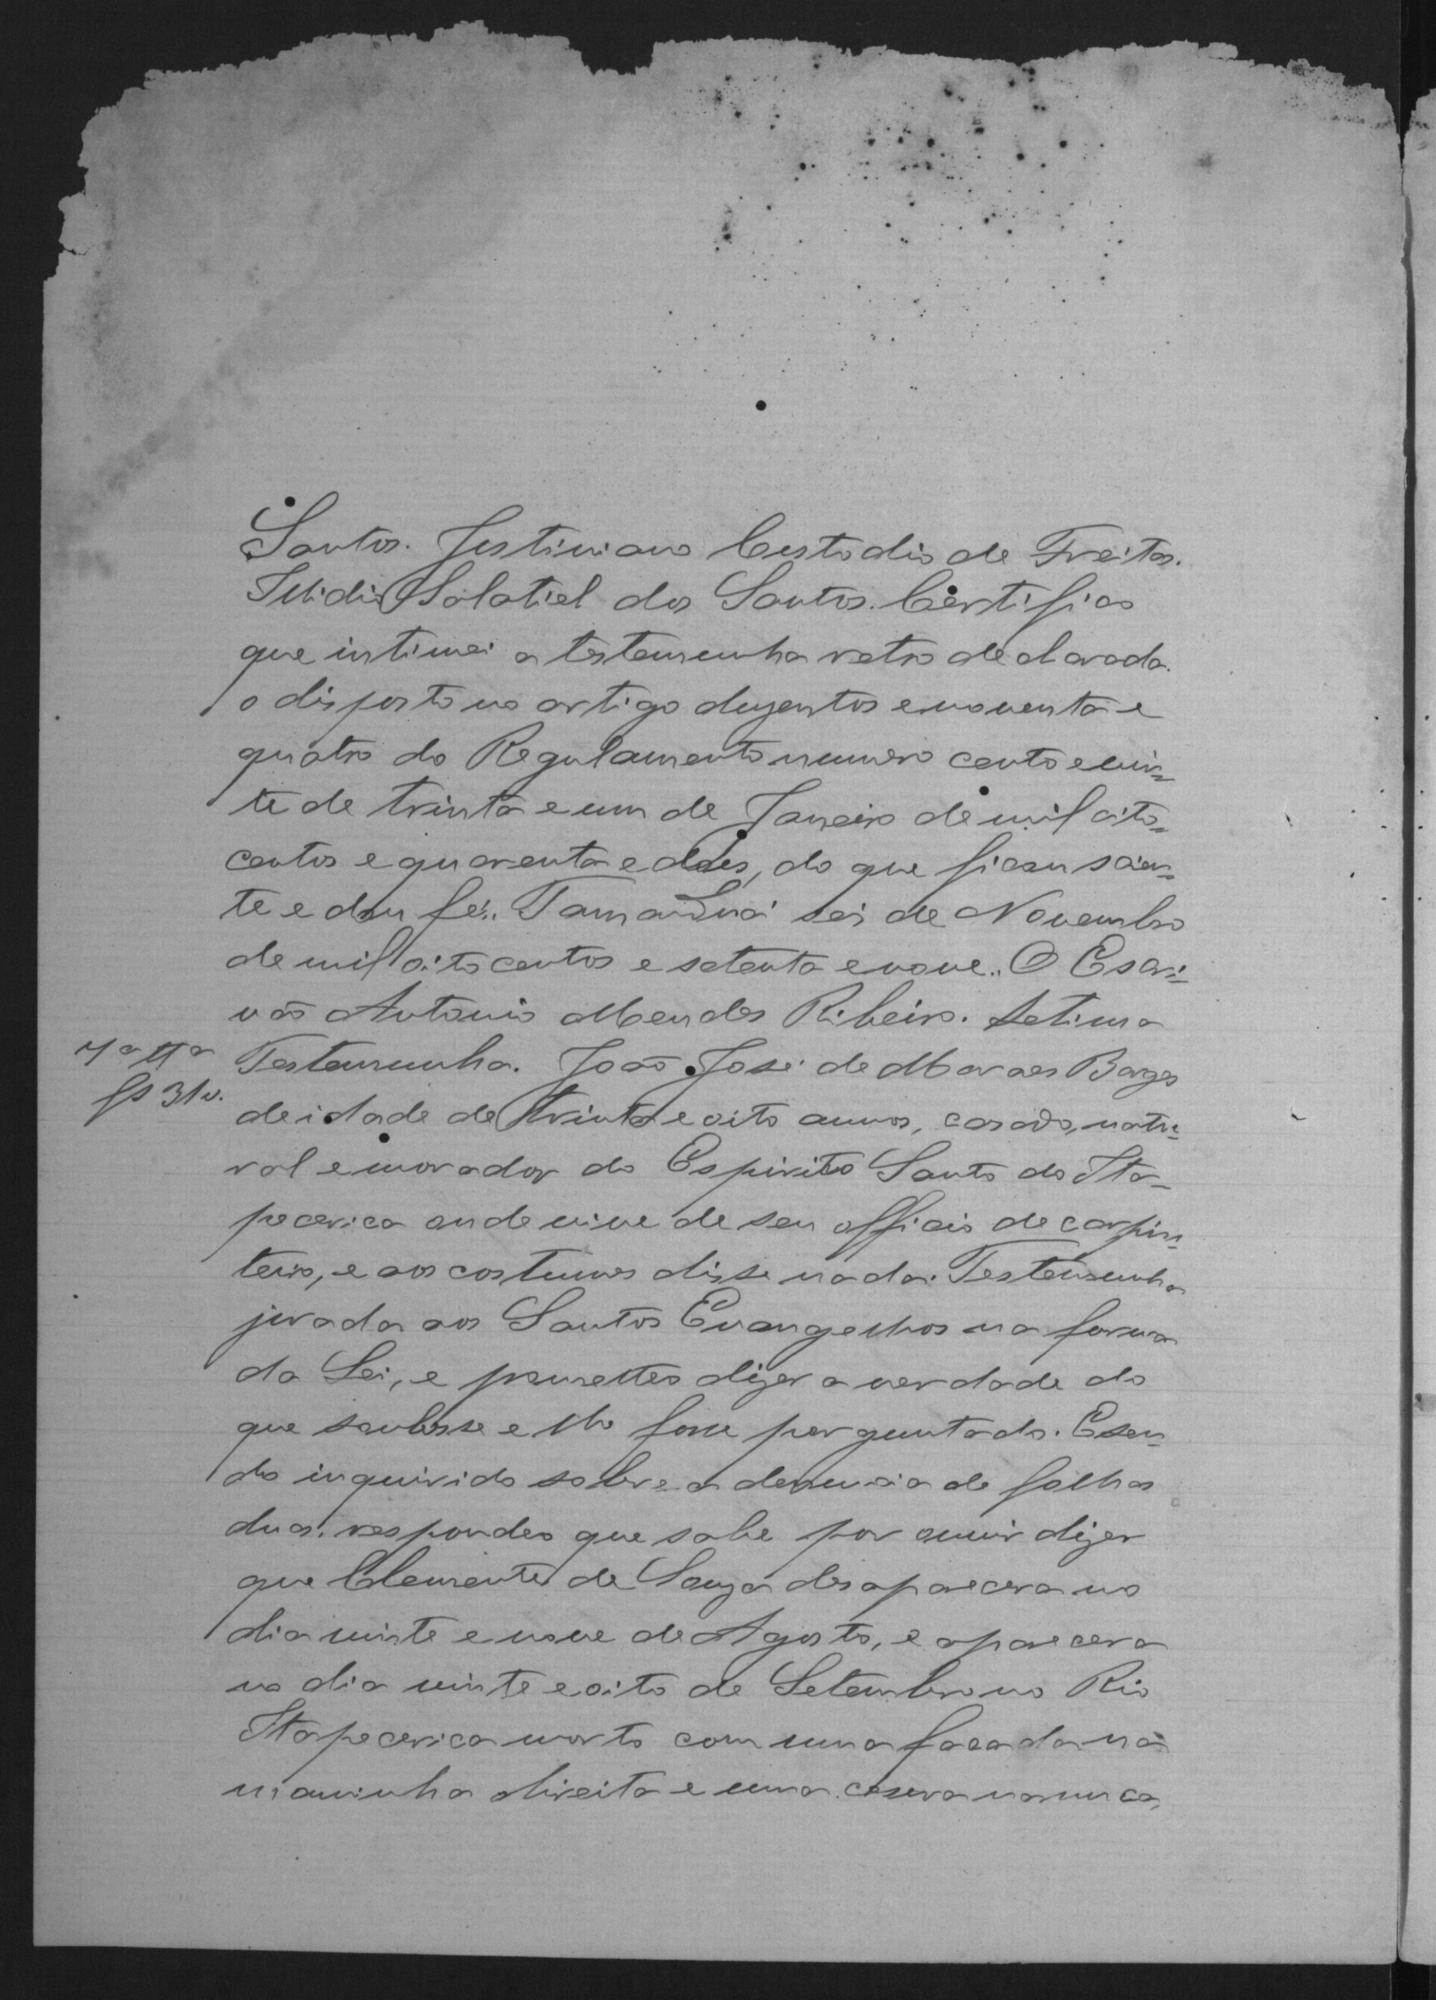 Santos. Justiniano Custodio de Freitas.
Salatiel dos Santos. Certifico
que intimei a testemunha retro declarada.
o disposto no artigo duzentos e noventa e
quatro do Regulamento numero cento e vin=
te de trinta e um de Janeiro de mil oito=
centos e quarenta e dois, do que ficou scien=
te e dou fé.. Tamanduá seis de Novembro
de mil oito centos e setenta e nove.. O Escri=
vão Antonio Mendes Ribeiro. Setima
7ª Tª
Testemunha. João José de Moraes Borges
fs 31v.
de idade de trinta e oito annos, casado, natu=
ral e morador do Espirito Santo do Ita=
pecerica onde vive de seu officio de carpin=
teiro, e aos costumes disse nada. Testemunha
jurada aos Santos Evangelhos na forma
da Lei, e prometteo dizer a verdade do
que soubesse e lho fosse perguntado. E sen=
do inquirido sobre a denuncia de folhas
duas. respondeo que sabe por ouvir dizer
que Clemente de Souza desaparecera no
dia vinte e nove de Agosto, e aparecera
no dia vinte e oito de Setembro no Rio
Itapecerica morto com uma facada na
maminha direita e uma na nuca,